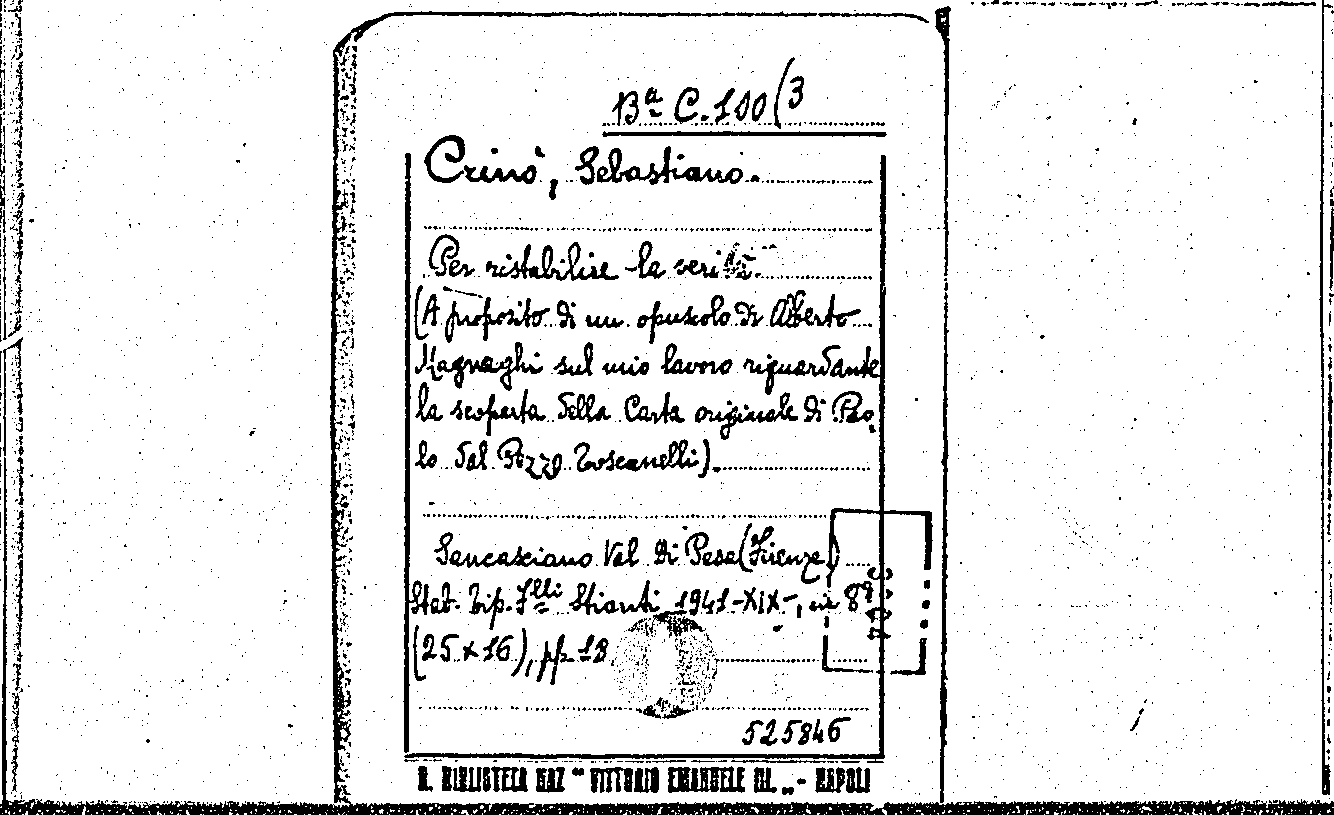 Bª C.100(3
Crinò, Sebastiano.
Per ristabilire la verità.
(A proposito di un opuscolo di Alberto
Magnaghi sul mio lavoro riguardante
la scoperta della Carta originale di Pao-
lo dal Pozzo Toscanelli).
Sancasciano Val di Pesa (Firenze)
Stab. Tip. F.lli Stianti, 1941-XIX-, in 8º
(25 x 16), pp. 18
525846
R. BIBLIOTECA NAZ " VITTORIO EMANUELE III. „ - NAPOLI